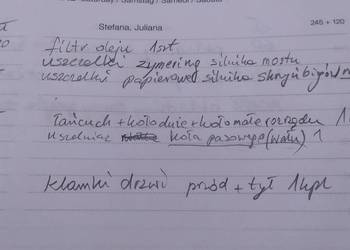 / Saturday / Samstag / Samedi / Sabato
Stefana, Juliana 245 + 120
filtr oleju 1szt.
uszczelki zymering silnika mostu
uszczelki papierowe silnika skrzyi biegów
łańcuch + koło duże + koło małe rozrządu 1
uszczelniacz koła pasowego (wału) 1
klamki drzwi przód + tył 1kpl